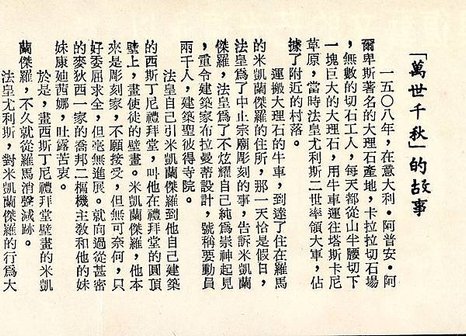 「萬世千秋」的故事
一五〇八年，在意大利・阿普安・阿
爾卑斯著名的大理石產地，卡拉拉切石場
，無數的切石工人，每天都從山半腰切下
一塊巨大的大理石，用牛車運往塔斯卡尼
草原，當時法皇尤利斯二世率領大軍，佔
據了附近的村落。
運搬大理石的牛車，到達了住在羅馬
的米凱蘭傑羅的住所，那一天恰是假日，
法皇爲了中止宗廟彫刻的事，告訴米凱蘭
傑羅，法皇爲了不炫耀自己純爲崇神起見
，重令建築家布拉蔓蒂設計，號稱要動員
兩千人，建築聖彼得寺院。
法皇自己引米凱蘭傑羅到他自己建築
的西斯丁尼禮拜堂，叫他在禮拜堂的圓頂
壁上，畫使徒的壁畫。米凱蘭傑羅，他本
來是彫刻家，不願接受，但無可奈何，只
好委屈求全，但毫無進展。就向過從甚密
的麥狄西一家的喬邦二樞機主教和他的妹
妹康廸茜娜，吐露苦衷。
於是，畫西斯丁尼禮拜堂壁畫的米凱
蘭傑羅，不久就從羅馬消聲減跡。
法皇尤利斯，對米凱蘭傑羅的行爲大